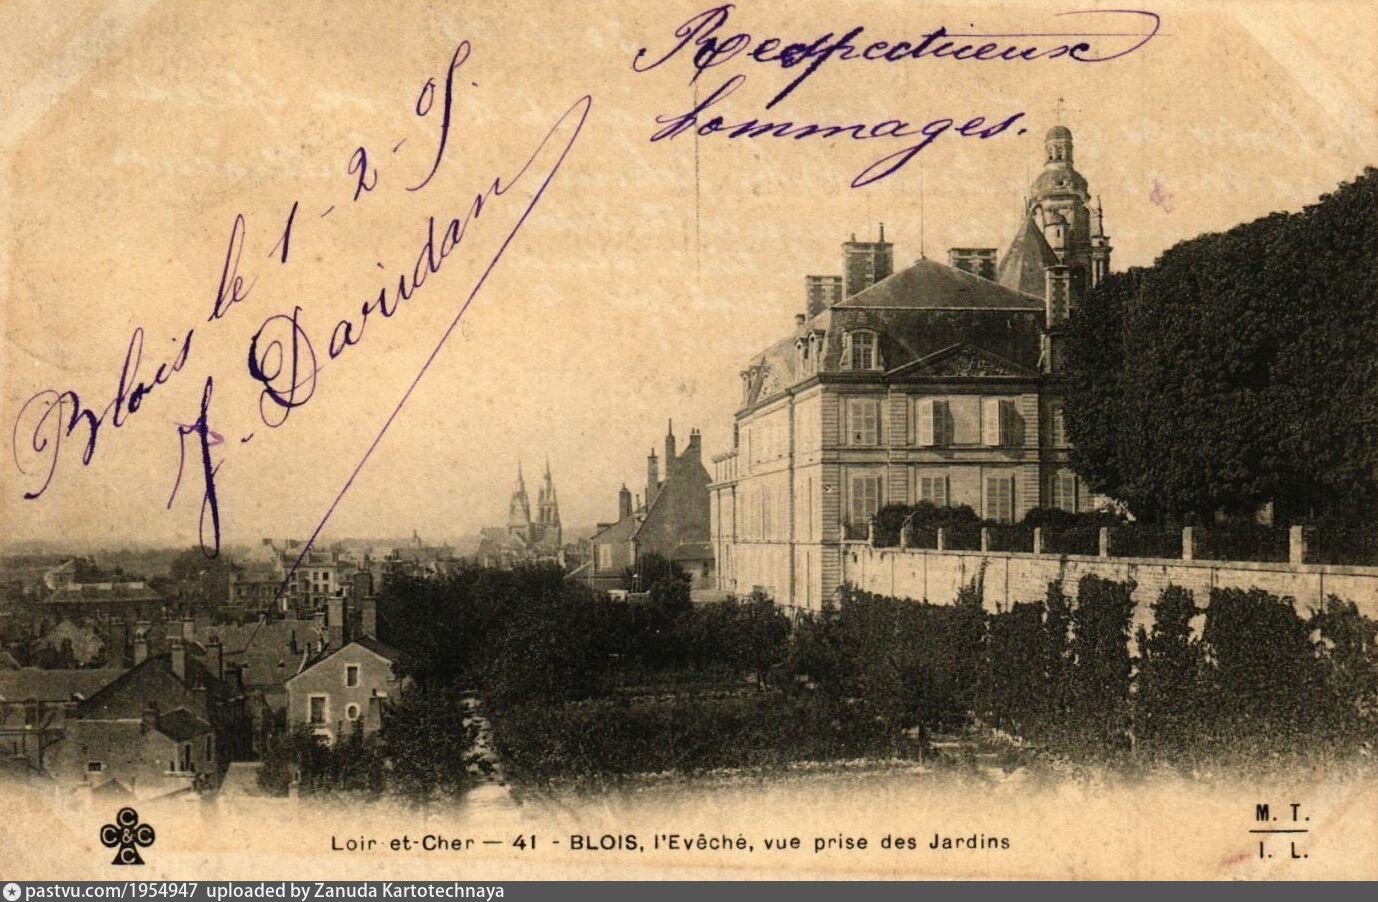 Respectueux
hommages.
Blois le 1-2-05.
J. Daridan
Loir-et-Cher — 41 - BLOIS, l'Evêché, vue prise des Jardins
M. T.
I. L.
C C & C C
pastvu.com/1954947 uploaded by Zanuda Kartotechnaya